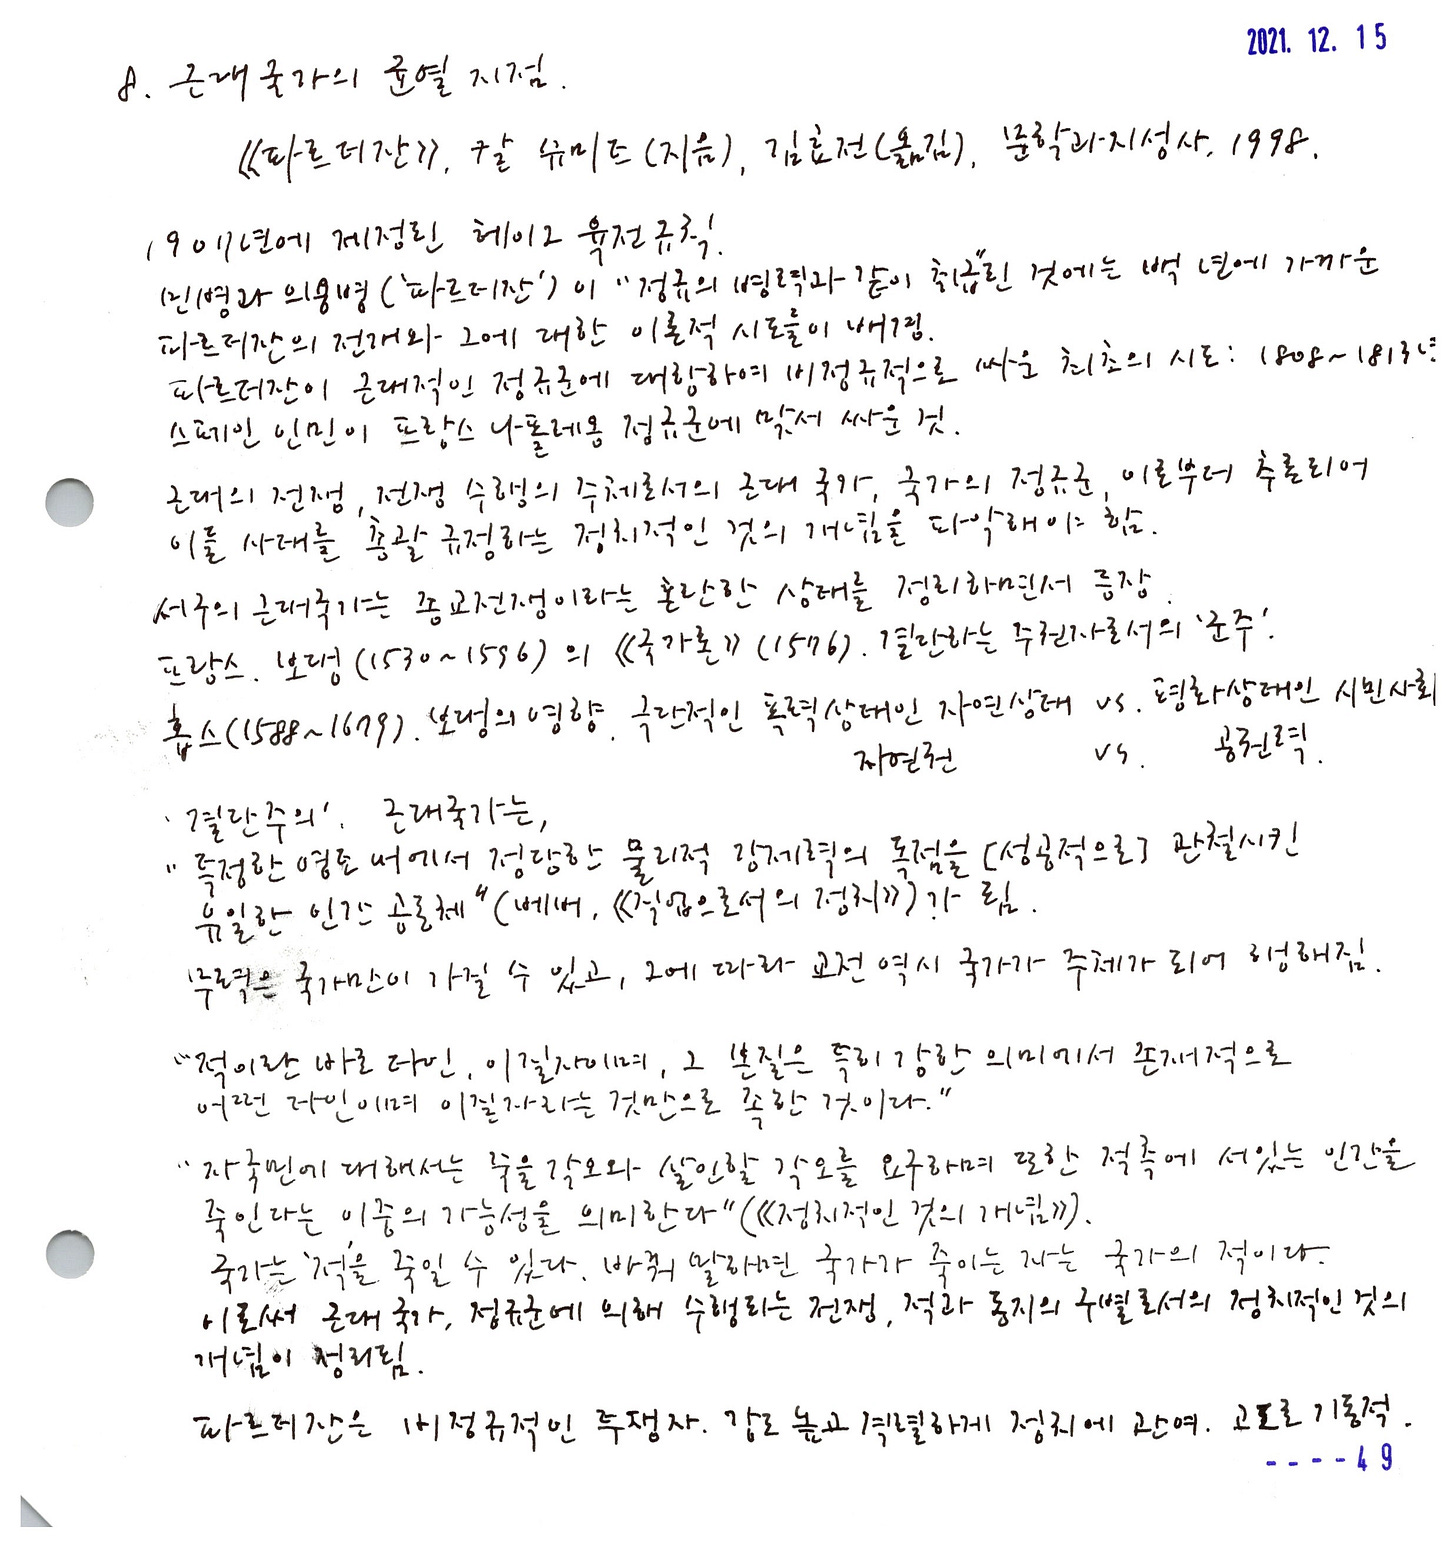 2021. 12. 15
8. 근대국가의 균열 지점.
《파르티잔》, 칼 슈미트(지음), 김효전(옮김), 문학과지성사, 1998.
1907년에 제정된 헤이그 육전규칙.
민병과 의용병('파르티잔')이 "정규의 병력과 같이 취급"된 것에는 백 년에 가까운
파르티잔의 전개와 그에 대한 이론적 시도들이 배경.
파르티잔이 근대적인 정규군에 대항하여 비정규적으로 싸운 최초의 시도: 1808~1813년
스페인 인민이 프랑스 나폴레옹 정규군에 맞서 싸운 것.
근대의 전쟁, 전쟁 수행의 주체로서의 근대 국가, 국가의 정규군, 이로부터 추론되어
이들 사태를 총괄 규정하는 정치적인 것의 개념을 파악해야 함.
서구의 근대국가는 종교전쟁이라는 혼란한 상태를 정리하면서 등장.
프랑스. 보댕(1530~1596)의 《국가론》(1576). 결단하는 주권자로서의 '군주'.
홉스(1588~1679). 보댕의 영향. 극단적인 폭력상태인 자연상태 vs. 평화상태인 시민사회
자연권 vs. 공권력.
'결단주의'. 근대국가는,
"특정한 영토 내에서 정당한 물리적 강제력의 독점을 [성공적으로] 관철시킨
유일한 인간 공동체"(베버, 《직업으로서의 정치》)가 됨.
무력은 국가만이 가질 수 있고, 그에 따라 교전 역시 국가가 주체가 되어 행해짐.
"적이란 바로 타인, 이질자이며, 그 본질은 특히 강한 의미에서 존재적으로
어떤 타인이며 이질자라는 것만으로 족한 것이다."
"자국민에 대해서는 죽을 각오와 살인할 각오를 요구하며 또한 적측에 서있는 인간을
죽인다는 이중의 가능성을 의미한다"(《정치적인 것의 개념》).
국가는 '적'을 죽일 수 있다. 바꿔 말하면 국가가 죽이는 자는 국가의 적이다.
이로써 근대 국가, 정규군에 의해 수행되는 전쟁, 적과 동지의 구별로서의 정치적인 것의
개념이 정리됨.
파르티잔은 비정규적인 투쟁자. 강도 높고 격렬하게 정치에 관여. 고도로 기동적.
----49